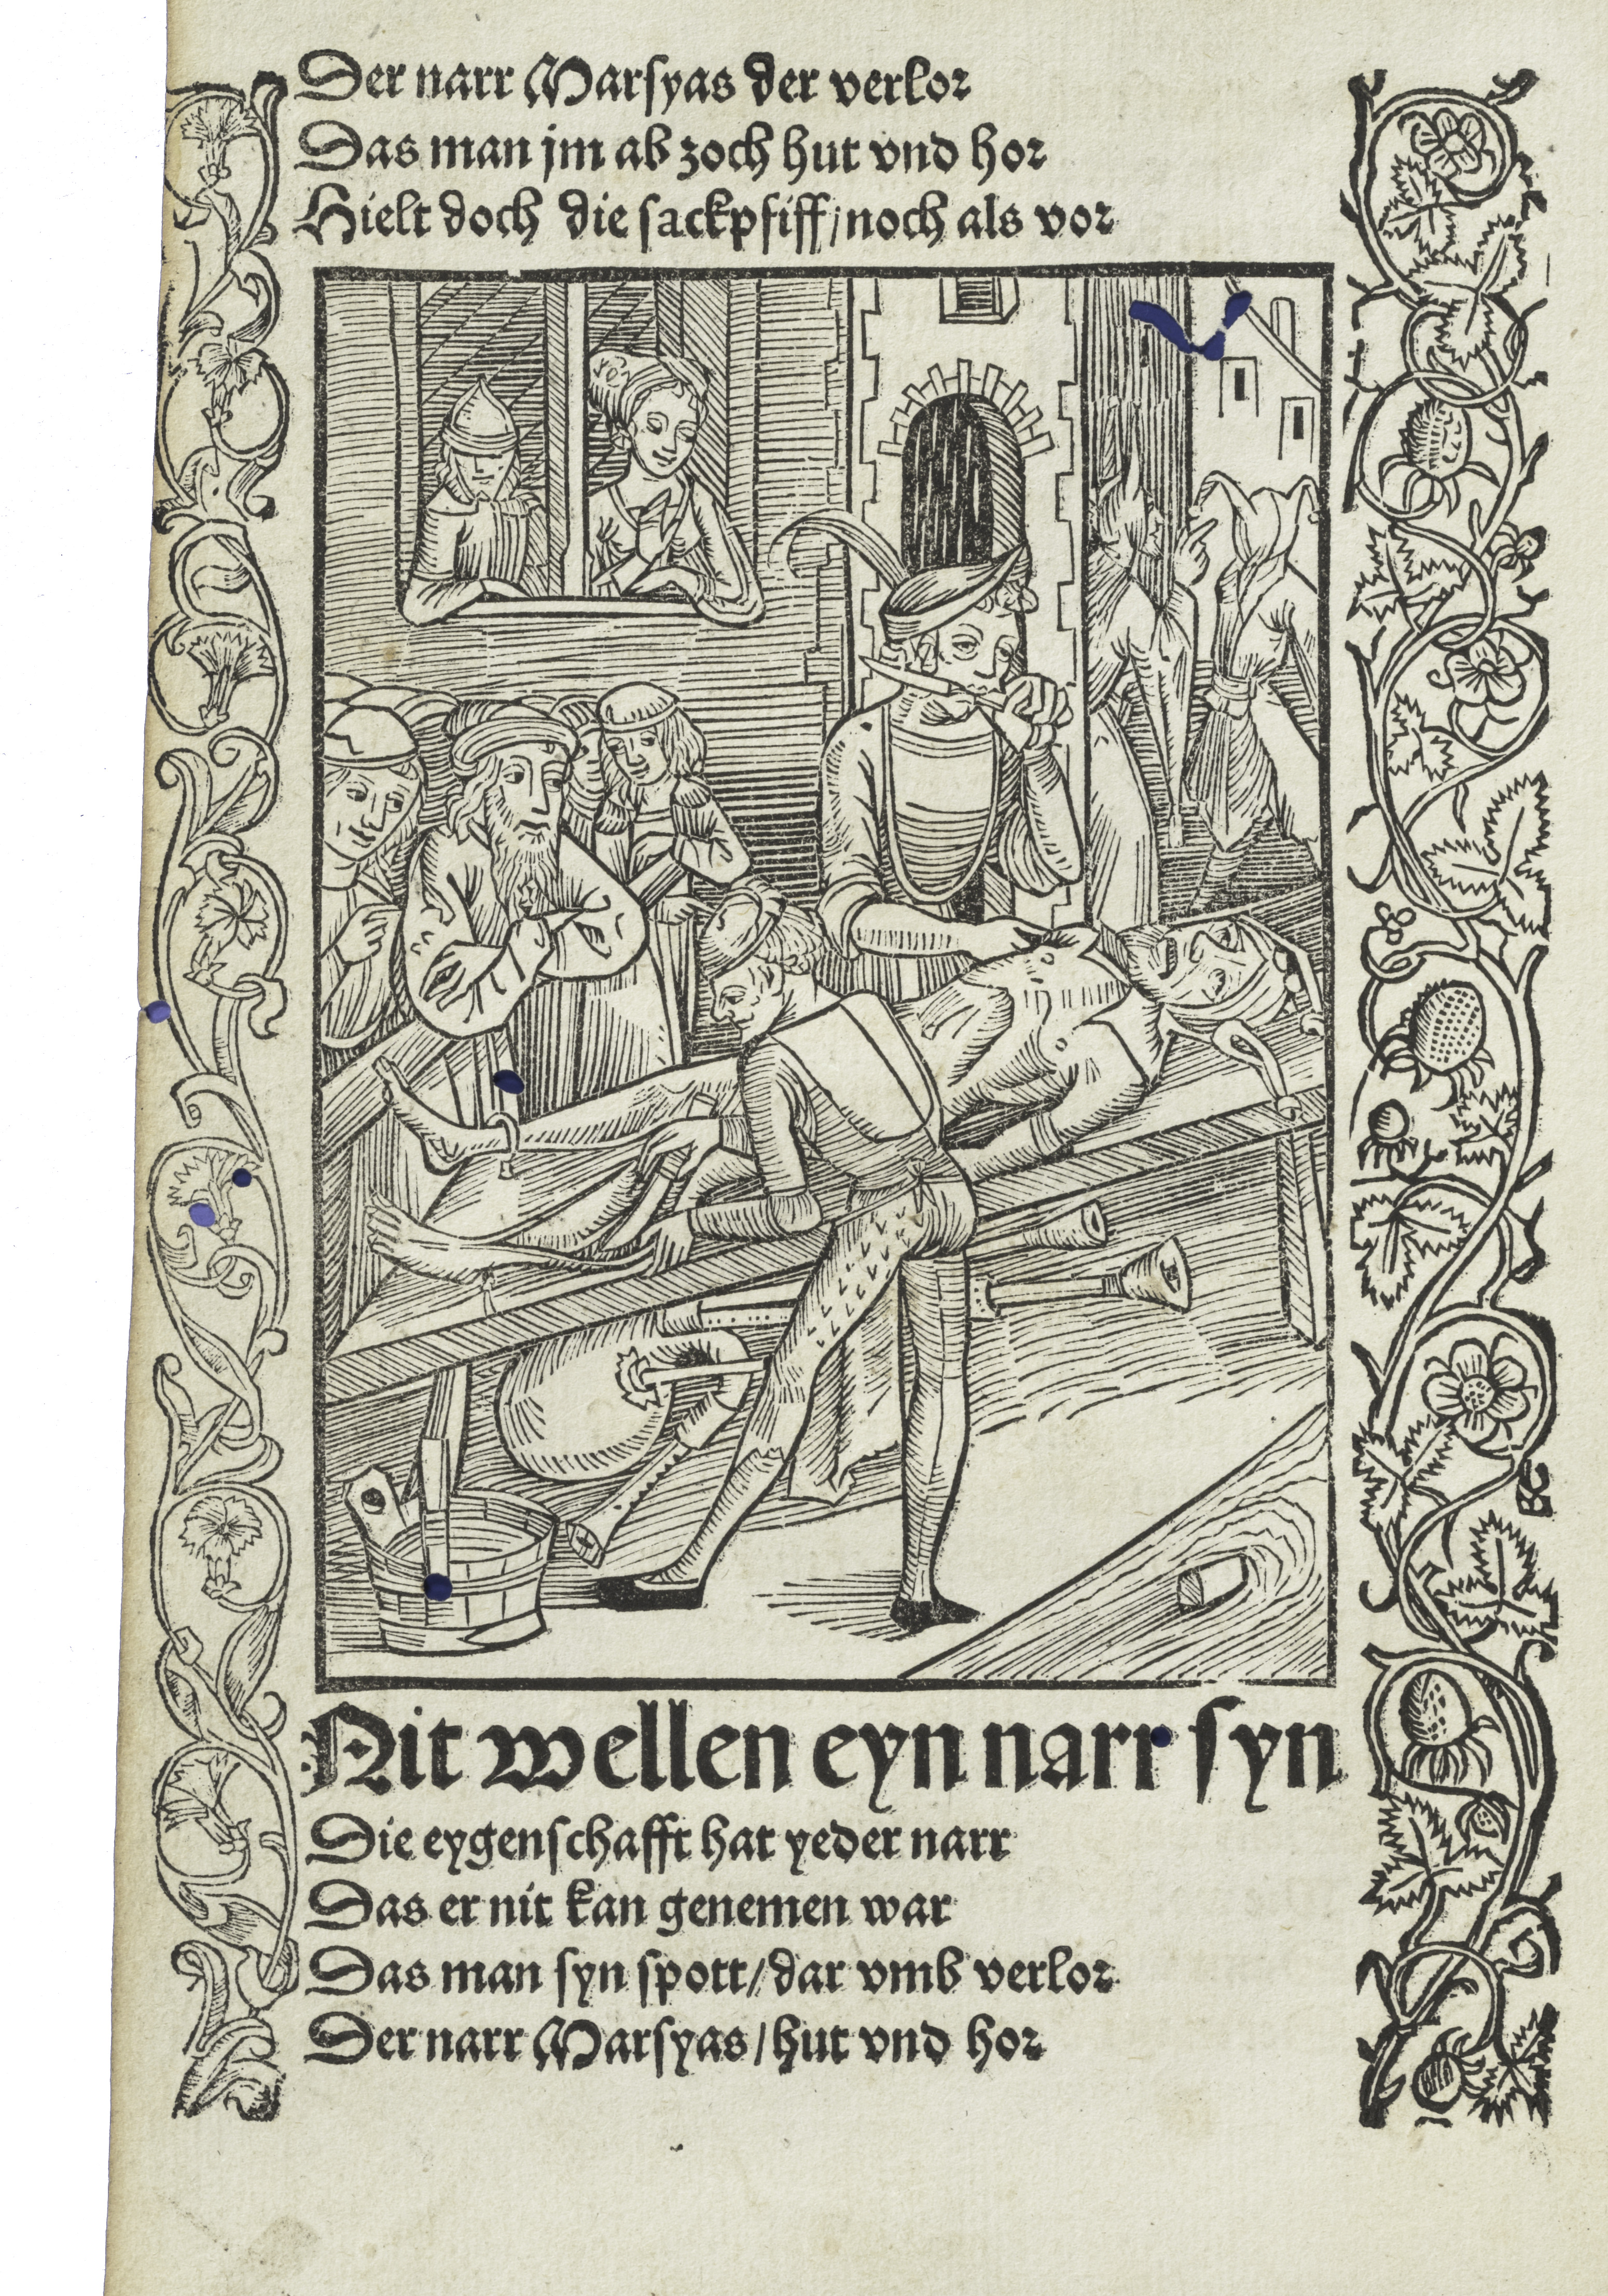 Der narr Marſyas der verlor
Das man jm ab zoch hut vnd hor
Hielt doch die ſackpfiff / noch als vor
Nit wellen eyn narr ſyn
Die eygenſchafft hat yeder narr
Das er nit kan genemen war
Das man ſyn ſpott / dar vmb verlor
Der narr Marſyas / hut vnd hor